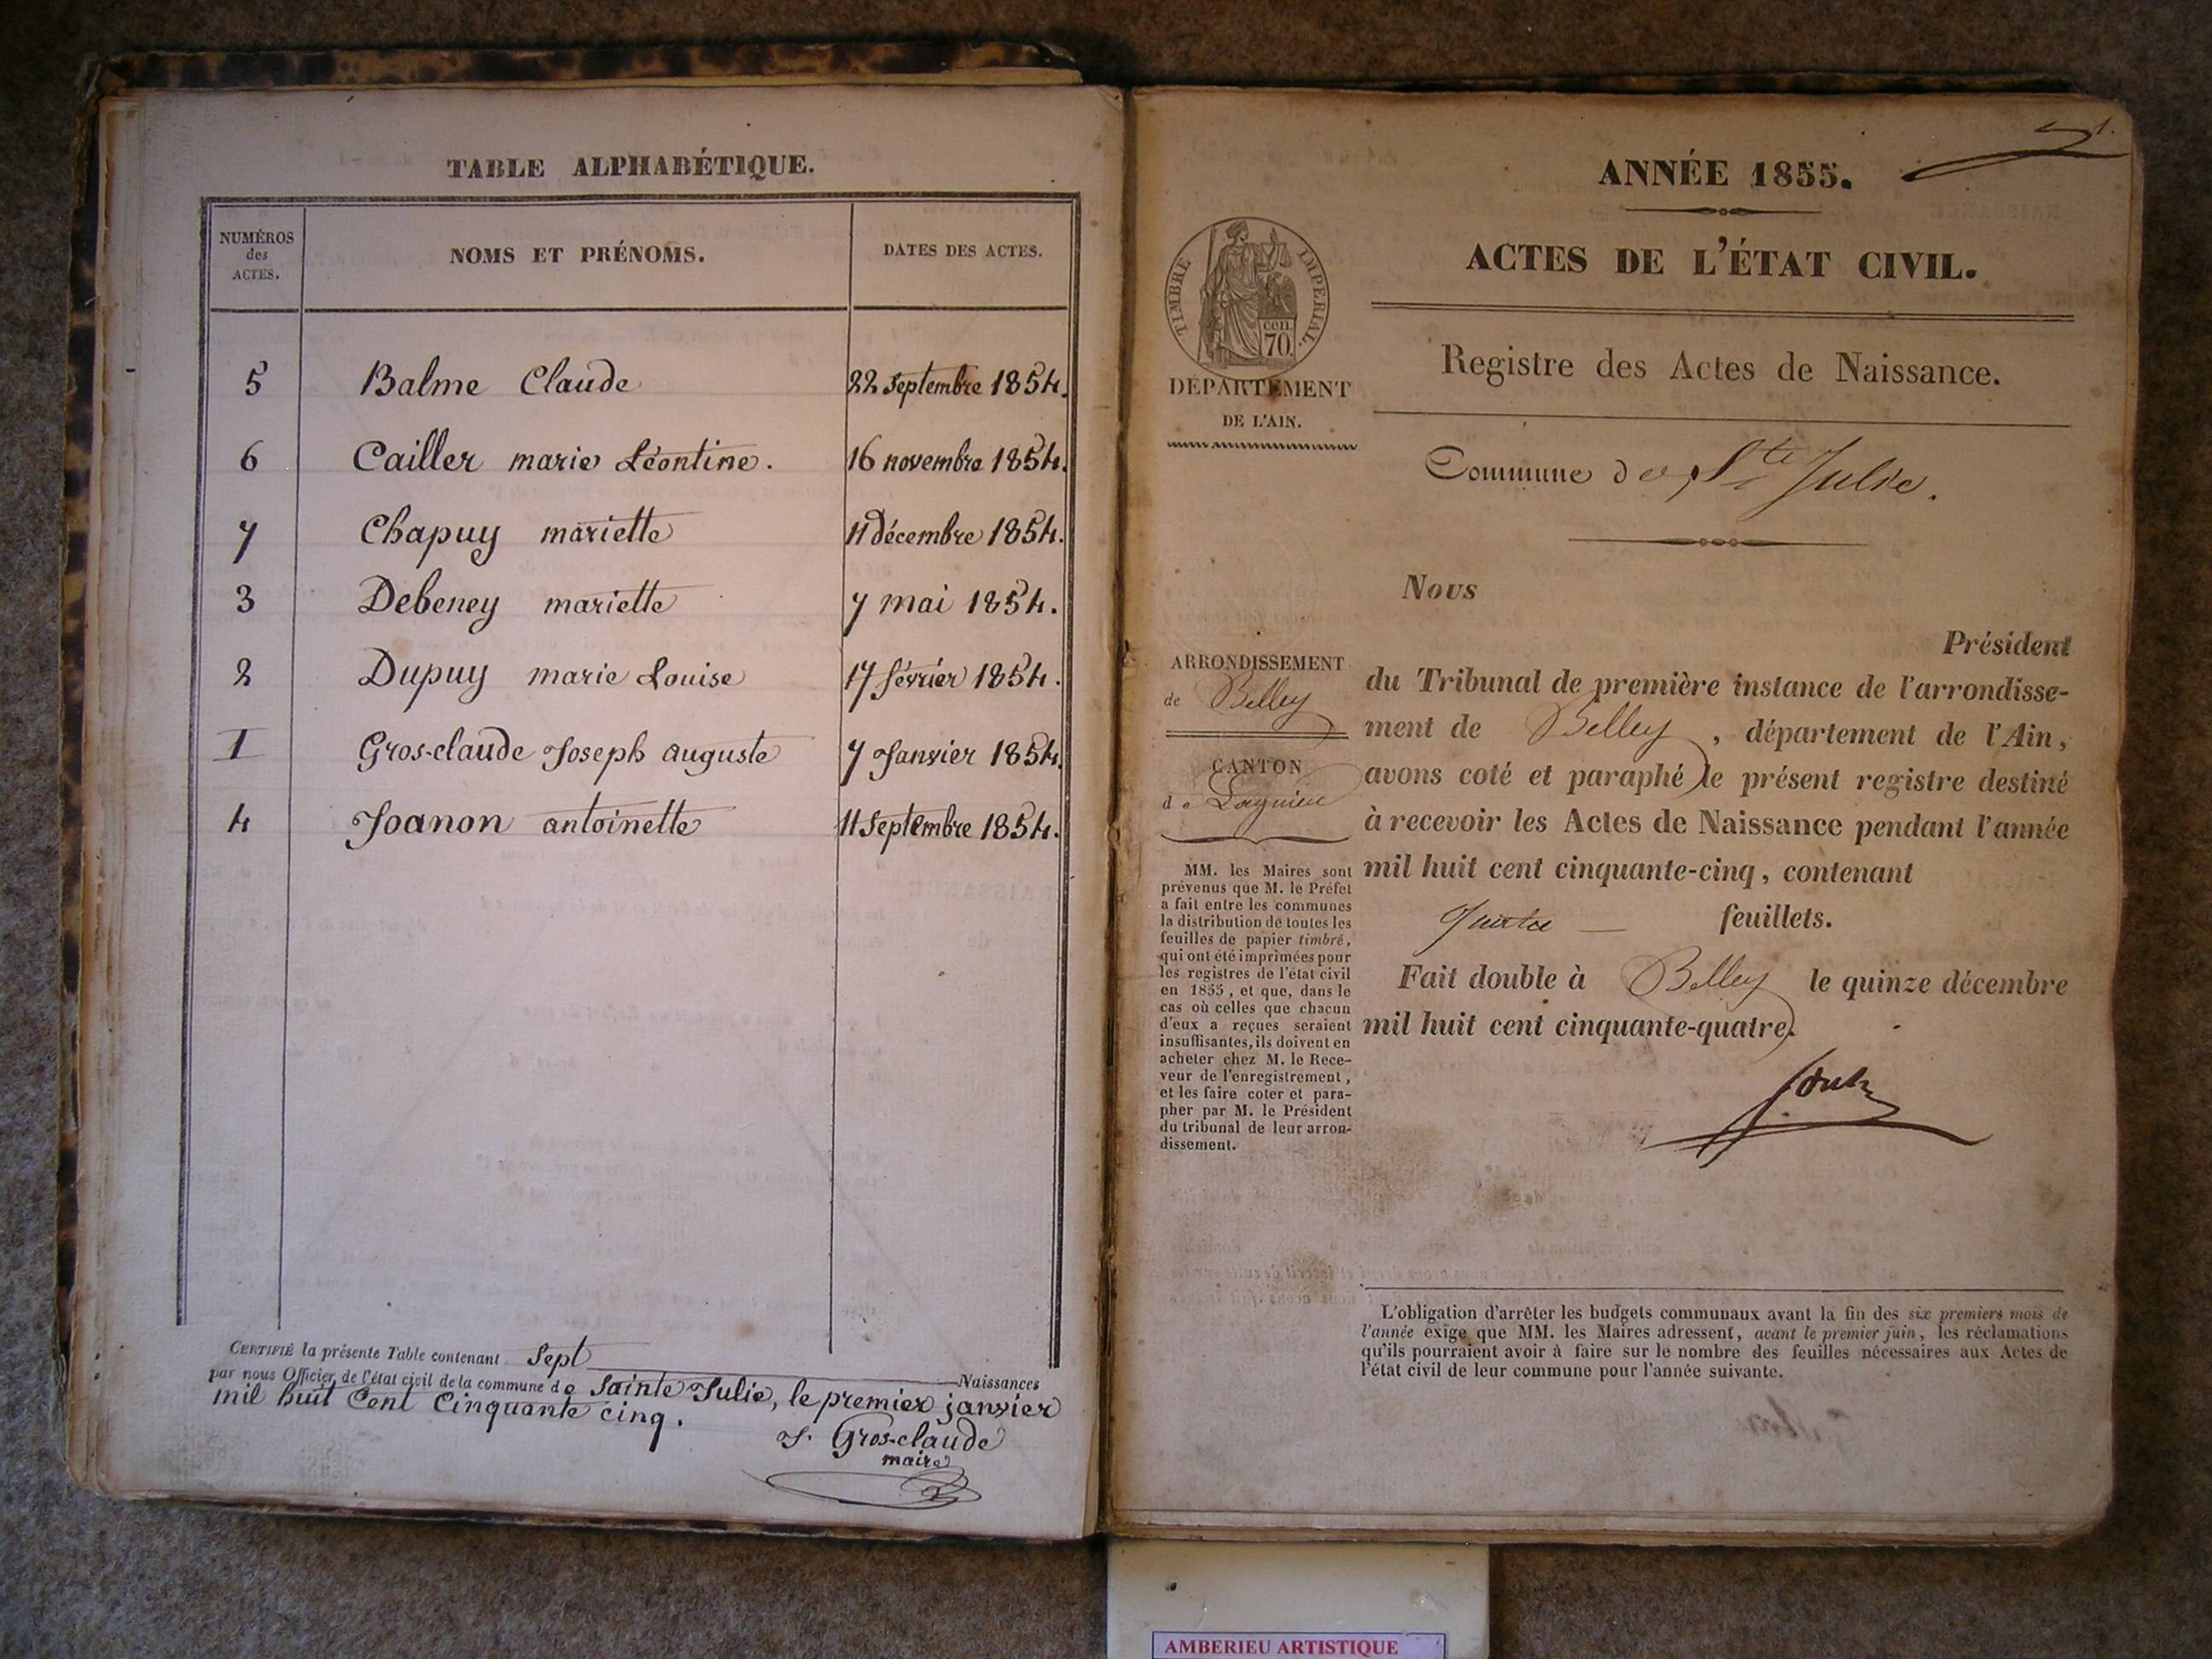 TABLE ALPHABÉTIQUE.
NUMÉROS des ACTES.
NOMS ET PRÉNOMS.
DATES DES ACTES.
5 Balme Claude 22 septembre 1854.
6 Cailler marie Léontine. 16 novembre 1854.
7 Chapuy mariette 11 décembre 1854.
3 Debeney mariette 7 mai 1854.
2 Dupuy marie Louise 17 février 1854.
1 Gros-claude Joseph auguste 7 Janvier 1854.
4 Joanon antoinette 11 Septembre 1854.
CERTIFIÉ la présente Table contenant Sept Naissances
par nous Officier de l'état civil de la commune de Sainte Julie, le premier janvier
mil huit Cent Cinquante cinq.
J. Gros-claude
maire
1.
ANNÉE 1855.
ACTES DE L'ÉTAT CIVIL.
TIMBRE IMPERIAL.
cen. 70.
DÉPARTEMENT
DE L'AIN.
Registre des Actes de Naissance.
Commune de Ste Julie.
ARRONDISSEMENT
de Belley
CANTON
de Lagnieu
MM. les Maires sont
prévenus que M. le Préfet
a fait entre les communes
la distribution de toutes les
feuilles de papier timbré,
qui ont été imprimées pour
les registres de l'état civil
en 1855, et que, dans le
cas où celles que chacun
d'eux a reçues seraient
insuffisantes, ils doivent en
acheter chez M. le Rece-
veur de l'enregistrement,
et les faire coter et para-
pher par M. le Président
du tribunal de leur arron-
dissement.
Nous
Président
du Tribunal de première instance de l'arrondisse-
ment de Belley, département de l'Ain,
avons coté et paraphé le présent registre destiné
à recevoir les Actes de Naissance pendant l'année
mil huit cent cinquante-cinq, contenant
feuillets.
Fait double à Belley le quinze décembre
mil huit cent cinquante-quatre.
L'obligation d'arrêter les budgets communaux avant la fin des six premiers mois de
l'année exige que MM. les Maires adressent, avant le premier juin, les réclamations
qu'ils pourraient avoir à faire sur le nombre des feuilles nécessaires aux Actes de
l'état civil de leur commune pour l'année suivante.
AMBERIEU ARTISTIQUE